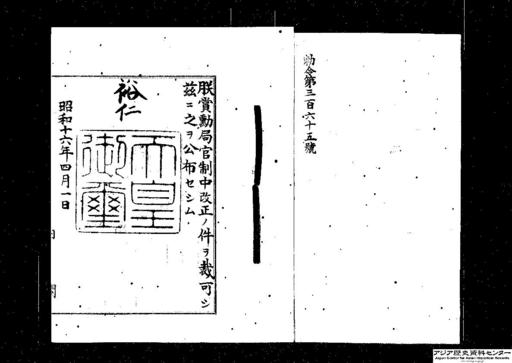 勅令第三百六十五號
朕賞勳局官制中改正ノ件ヲ裁可シ
玆ニ之ヲ公布セシム
裕仁
天皇
御璽
昭和十六年四月一日
内閣
アジア歴史資料センター
Japan Center for Asian Historical Records